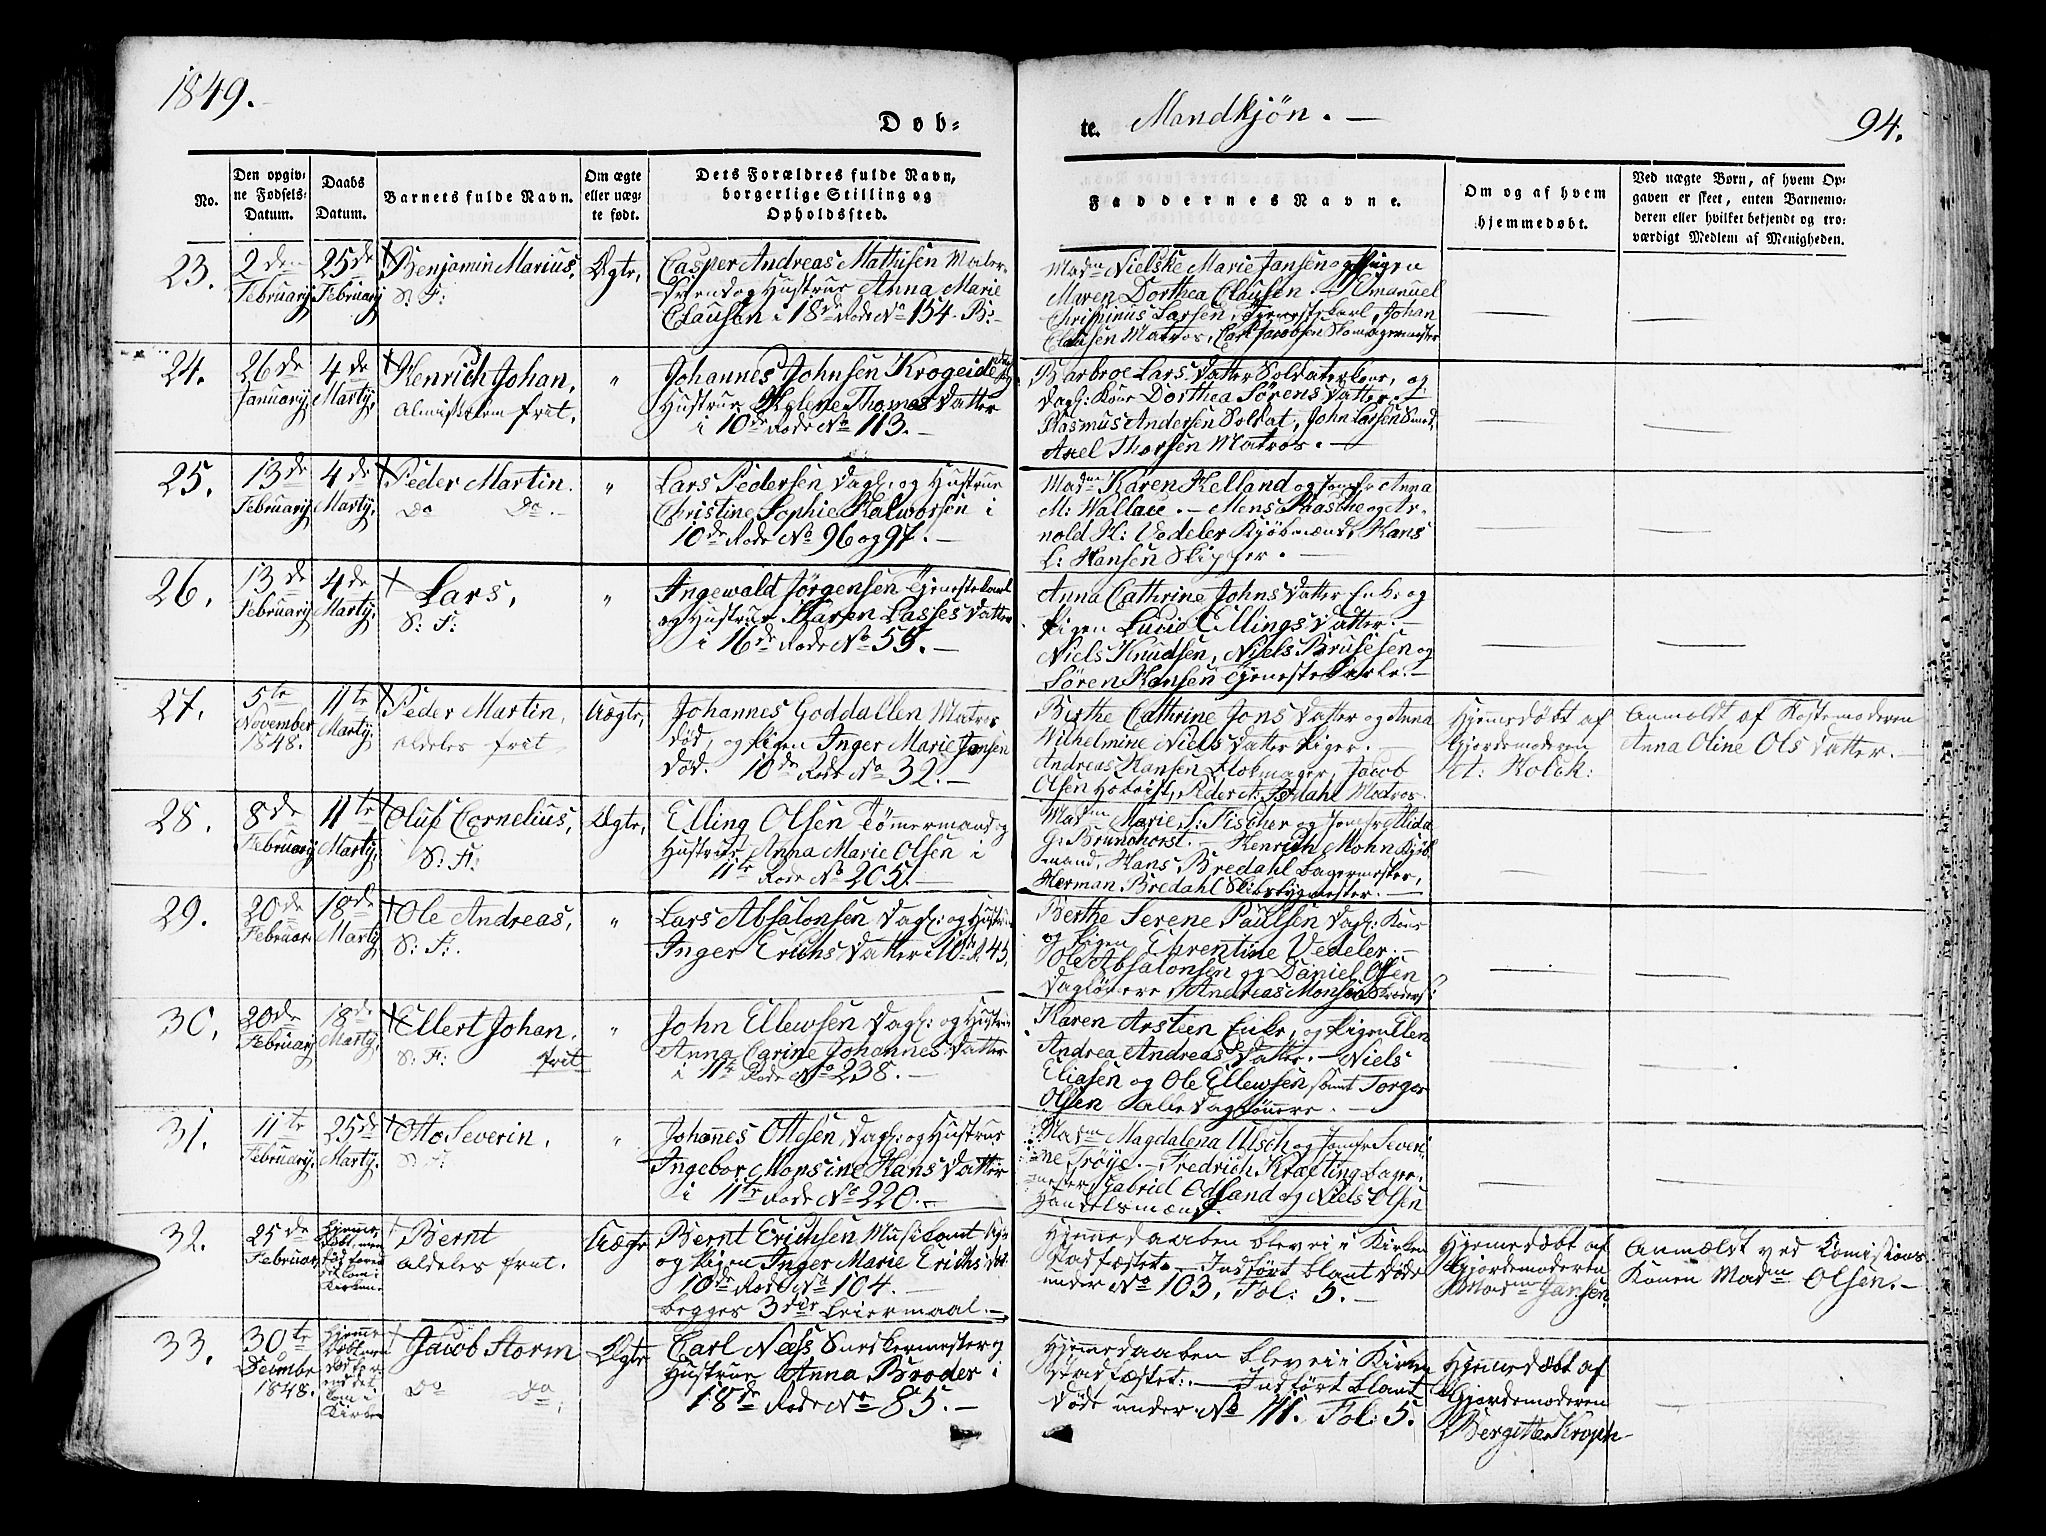 1849.
Døb-
te. Mandkjøn. —
94.
No.
Den opgiv-
ne Fødsels-
Datum.
Daabs
Datum.
Barnets fulde Navn.
Om ægte
eller uæg-
te født.
Dets Forældres fulde Navn,
borgerlige Stilling og
Opholdssted.
Faddernes Navne.
Om og af hvem
hjemmedøbt.
Ved uægte Børn, af hvem Op-
gaven er skeet, enten Barnemo-
deren eller hvilket bekjendt og tro-
værdigt Medlem af Menigheden.
23.
2den
February
25de
February
Benjamin Marius,
S: F:
Ægte,
Casper Andreas Mathisen Maler-
svend og Hustrue Anna Marie
Clausen i 18de Rode No 154. B: -
Madm Nielske Marie Jansen og Pigen
Maren Dorthea Clausen. - Emanuel
Christinus Larsen, Tjenestekarl, Johan
Clausen Matros, Carl Jacobsen Skomagermester
24.
26de
January
4de
Marty,
Henrich Johan,
Almisselem frit.
"
Johannes Johnsen Krogeide
Hustrue Helene Thomas Datter
i 10de Rode No 113. -
Barbroe Lars Datter Soldaterkone, og
Dagl: Kone Dorthea Sørens Datter. -
Rasmus Andersen Soldat, John Larsen Smed,
Axel Thorsen Matros. -
25.
13de
February
4de
Marty,
Peder Martin.
Do Do. -
"
Lars Pedersen Dagl: og Hustrue
Christine Sophie Halvorsen i
10de Rode No 96 og 97. -
Madm Karen Helland og Jomfr Anna
M: Wallace. - Mens Raasche og Ar-
nold H: Vedeler Kjøbmænd, Hans
L: Hansen Skipper. -
26.
13de
February
4de
Marty,
Lars,
S: F:
"
Ingewald Jørgensen Tjenestekarl
og Hustrue Maren Lasses Datter
i 16de Rode No 55. -
Anna Cathrine Johns Datter Enke og
Pigen Lucie Ellings Datter. -
Niels Knudsen, Niels Brusesen og
Søren Hansen Tjenestekarle. -
27.
5te
November
1848.
11te
Marty,
Peder Martin,
aldeles frit
Uægte,
Johannes Goddallen Matros
død, og Pigen Inger Marie Jansen
død. 10de Rode No 32. -
Berthe Cathrine Jons Datter og Anna
Wilhelmine Niels Datter Piger.
Andreas Hansen Blokmager, Jacob
Olsen Hoboist, Peder A: Dahl Matros.
Hjemedøbt af
Gjordemoderen
A: Holck:
Anmældt af Kostemoderen
Anna Oline Ols Datter. -
28.
8de
February
11te
Marty,
Oluf Cornelius,
S: F:
Ægte,
Elling Olsen Tømmermand og
Hustrue Anna Marie Olsen i
11te Rode No 205. -
Madm Marie S: Fischer og Jomfr Alida
G: Brunchorst. - Henrich Mohn Kjøb-
mand, Hans Bredahl Bagermester,
Herman Bredahl Skibsbygmester. -
29.
20de
Februari
18de
Marty
Ole Andreas,
S: F:.
"
Lars Absalonsen Dagl: og Hustrue
Inger Erichs Datter i 10de R. 145.
Berthe Serene Paulsen Dagl: Kone
og Pigen Ehrentine Vedeler. -
Ole Absalonsen og Daniel Olsen
Daglønere, Andreas Monsen
30.
20de
February
18de
Marty,
Ellert Johan,
S: F: frit
"
John Ellewsen Dagl: og Hustrue
Anna Carine Johannes Datter
i 11te Rode No 238. -
Karen Arstien Enke, og Pigen Ellen
Andrea Andreas Datter. - Niels
Eliasen og Ole Ellewsen samt Torger
Olsen alle Daglønere. -
31.
11te
February,
25de
Marty.
Otto Severin,
S: F:
"
Johannes Ottesen, Dagl: og Hustrue
Ingebor Monsine Hans Datter
i 11te Rode No 220. -
Madm Magdalena Ulsch og Jomfr Severi-
ne Trøye. - Fredrich Kræfting Bager-
mester, Gabriel Odland og Niels Olsen
Handelsmænd.
32.
25de
Februar
Hjemme-
døbt, men
død førend
det kom i
Kirken.
Bernt
aldeles frit.
Uægte
Bernt Erichsen Musikant
og Pigen Inger Marie Erichs Dat:
10de Rode No 104.
begges 3die Leiermaal. -
Hjemmedaaben blev ei i Kirken
stadfæstet. - Indført blant døde
under No 103, Fol: 5. -
Hjemedøbt af
Gjordemoderen
Madm Jansen.
Anmældt ved Komisions
Konen Madm Olsen. -
33.
30te
Decembr
1848.
Hjemme-
døbt, men
død før-
end det
kom i
Kirke
Jacob Storm
Do Do,
Ægte
Carl Næss Snedkermester og
Hustrue Anna Broder i
18de Rode No 85. -
Hjemedaaben blev ei i Kirken
stadfæstet: - Indført blant
Døde under No 41. Fol: 5.
Hjemmedøbt af
Gjordemoderen
Bergitte Kroph